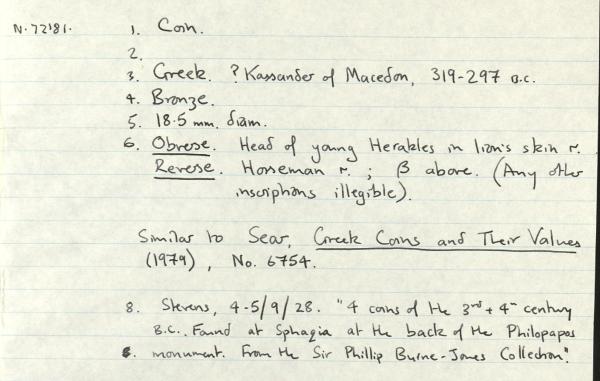 N.72'81.
1. Coin.
2.
3. Greek. ? Kassander of Macedon, 319-297 B.C.
4. Bronze.
5. 18.5 mm. diam.
6. Obverse. Head of young Herakles in lion's skin r.
Reverse. Horseman r. ; B above. (Any other
inscriptions illegible).
Similar to Sear, Greek Coins and Their Values
(1979), No. 6754.
8. Stevens, 4-5/9/28. "4 coins of the 3rd + 4th century
B.C. Found at Sphagia at the back of the Philopapos
monument. From the Sir Phillip Burne-Jones Collection".